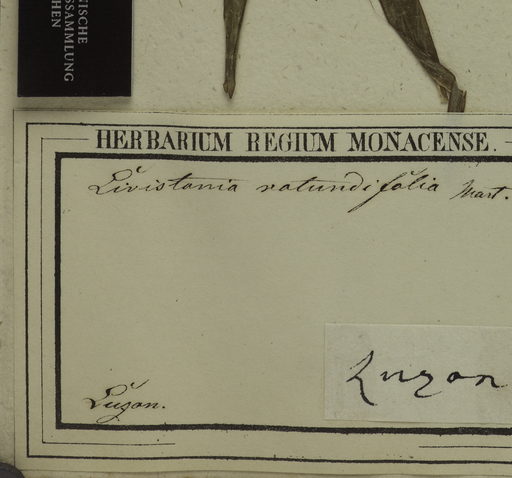 NISCHE
SSAMMLUNG
CHEN
HERBARIUM REGIUM MONACENSE.
Livistonia rotundifolia Mart.
Luzon
Luzon.